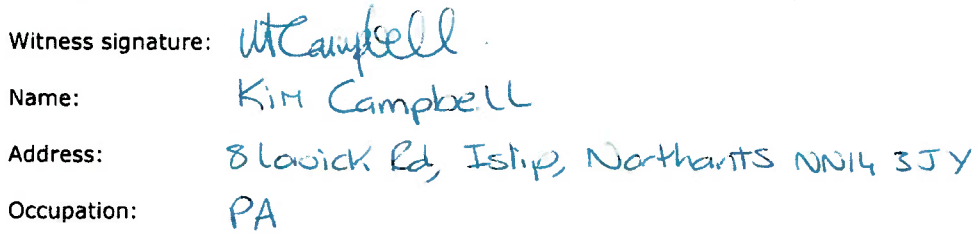 Witness signature: Campbell
Name: Kim Campbell
Address: 8 Lowick Rd, Islip, Northants NN14 3JY
Occupation: PA